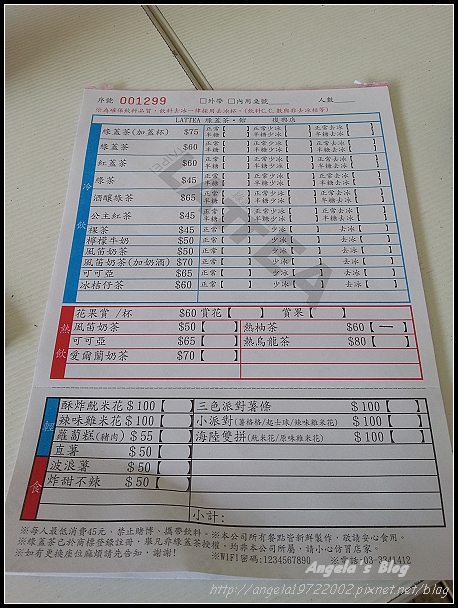 序號 001299 □外帶 □內用桌號 人數
※為確保飲料品質，飲料去冰一律採用去冰杯。(飲料C.C.數與非去冰相等)
LATTEA 綠蓋茶‧館 復興店
冷飲
綠蓋茶(加蓋杯) $75 正常【 】正常少冰【 】正常去冰【 】
半糖【 】半糖少冰【 】半糖去冰【 】
綠蓋茶 $60 正常【 】正常少冰【 】正常去冰【 】
半糖【 】半糖少冰【 】半糖去冰【 】
紅蓋茶 $60 正常【 】正常少冰【 】正常去冰【 】
半糖【 】半糖少冰【 】半糖去冰【 】
綠茶 $45 正常【 】正常少冰【 】正常去冰【 】
半糖【 】半糖少冰【 】半糖去冰【 】
酒釀綠茶 $65 正常【 】正常少冰【 】正常去冰【 】
半糖【 】半糖少冰【 】半糖去冰【 】
公主紅茶 $45 正常【 】正常少冰【 】正常去冰【 】
半糖【 】半糖少冰【 】半糖去冰【 】
裸茶 $45 正常【 】少冰【 】去冰【 】
檸檬牛奶 $50 正常【 】少冰【 】去冰【 】
風笛奶茶 $50 正常【 】少冰【 】去冰【 】
風笛奶茶(加奶酒) $70 正常【 】少冰【 】去冰【 】
可可亞 $65 正常【 】少冰【 】去冰【 】
冰桔仔茶 $60 正常【 】少冰【 】去冰【 】
LATTEA
熱飲
花果賞 /杯 $60 賞花【 】 賞果【 】
風笛奶茶 $50【 】熱柚茶 $60【一】
可可亞 $65【 】熱烏龍茶 $80【 】
愛爾蘭奶茶 $70【 】
輕食
酥炸魷米花 $100【 】三色派對薯條 $100【 】
辣味雞米花 $100【 】小派對(薯格格/起士球/辣味雞米花) $100【 】
蘿蔔糕(豬肉) $55【 】海陸雙拼(魷米花/原味雞米花) $100【 】
豆薯 $50【 】
波浪薯 $50【 】
炸甜不辣 $50【 】
小計:
※每人最低消費45元，禁止賭博、攜帶飲料。※本公司所有餐點皆新鮮製作，敬請安心食用。
※綠蓋茶已於商標登錄註冊，舉凡非綠蓋茶授權，均非本公司所屬，請小心仿冒店家。
※如有更換座位麻煩請先告知，謝謝! ※WIFI密碼:1234567890 ※電話:03-3341412
Angela's Blog
http://angela19722002.pixnet.net/blog